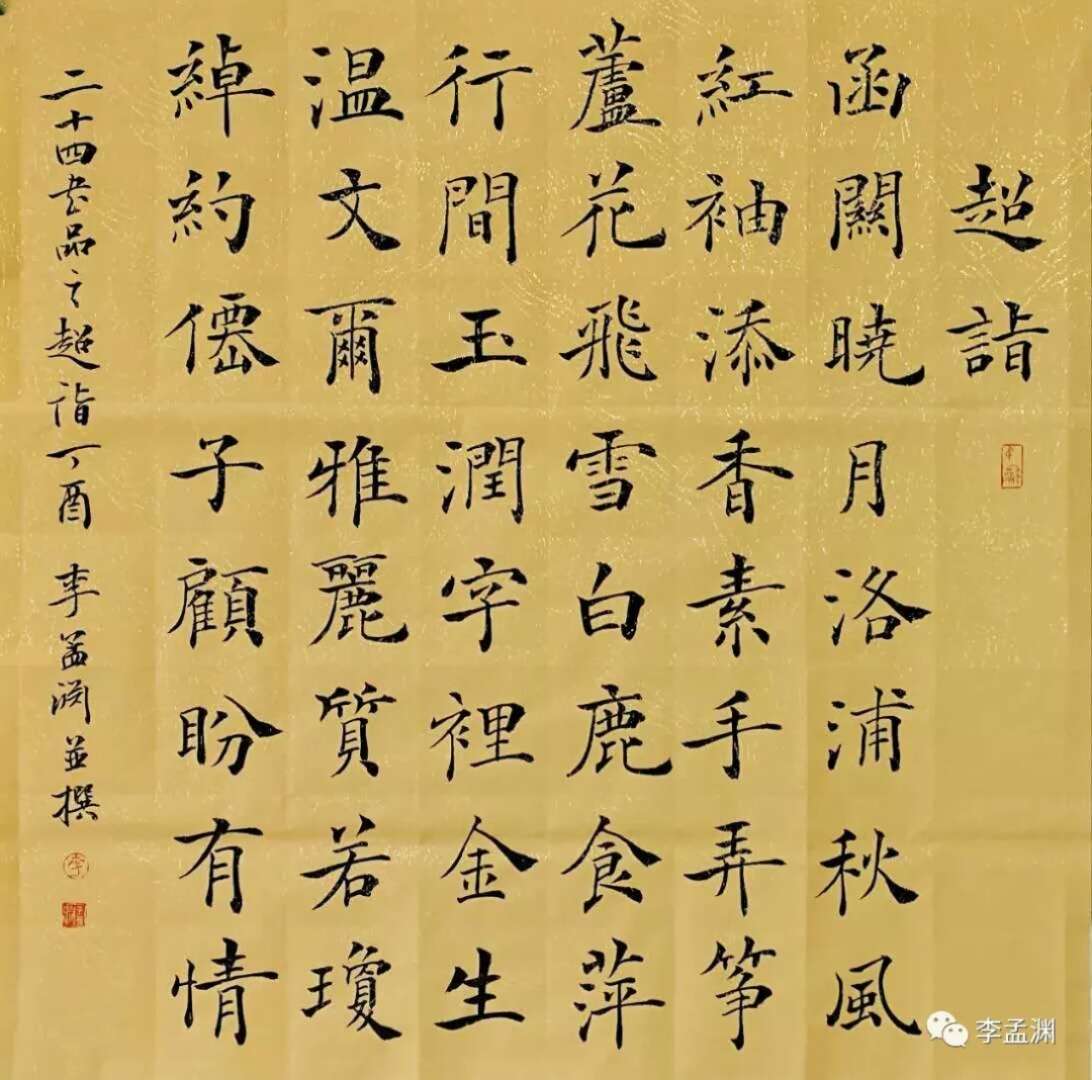 超詣
函關曉月洛浦秋風
紅袖添香素手弄筝
蘆花飛雪白鹿食萍
行間玉潤字裡金生
温文爾雅麗質若瓊
綽約僊子顧盼有情
二十四书品之超詣丁酉 李孟渊並撰
李孟渊